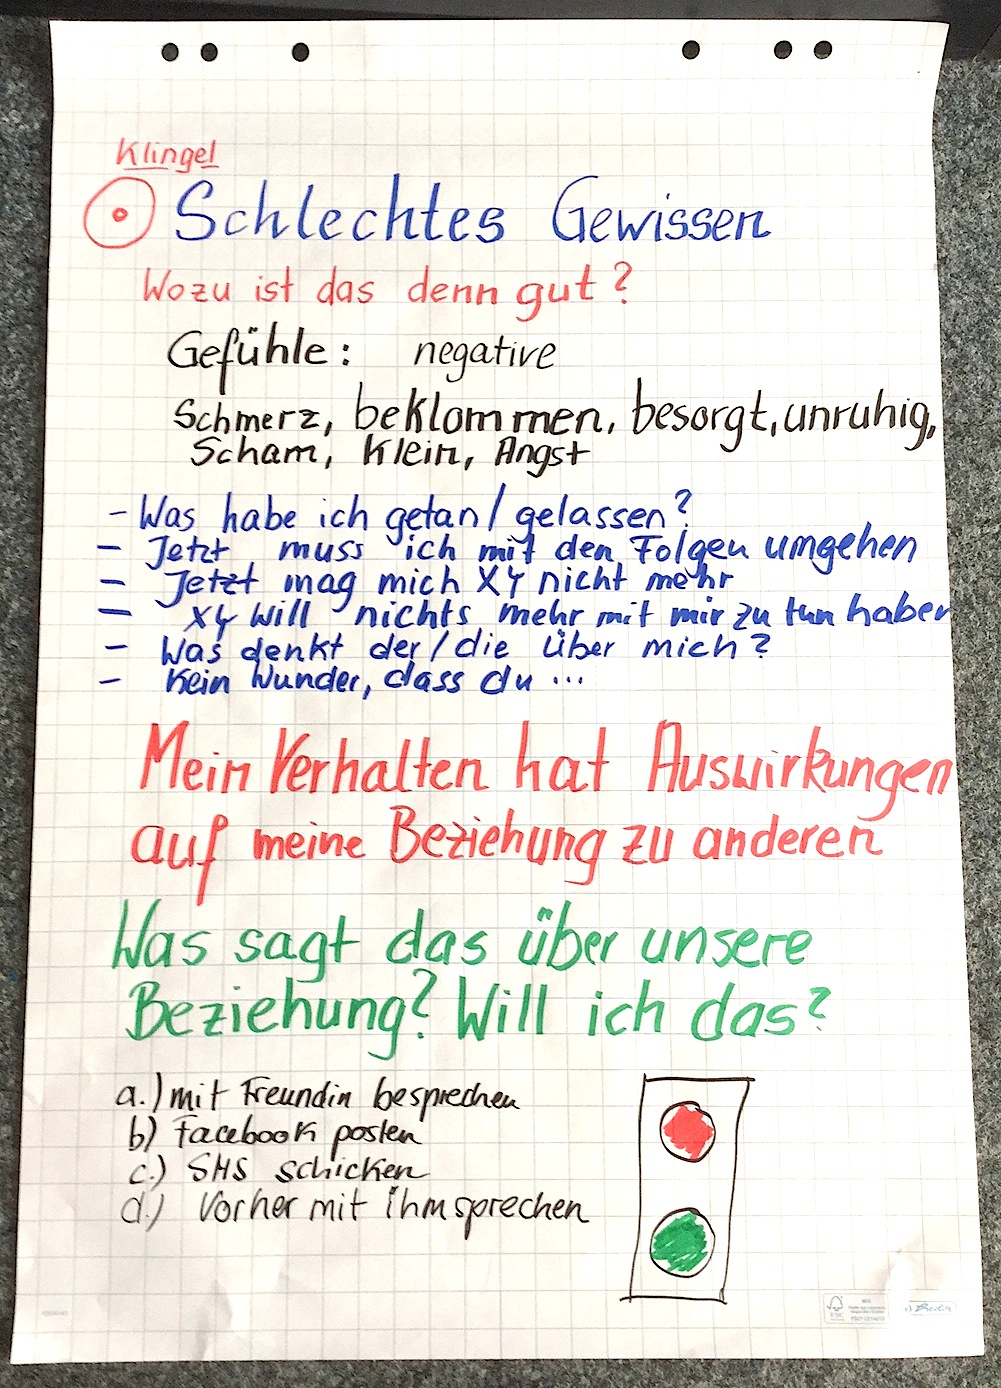 Klingel
Schlechtes Gewissen
Wozu ist das denn gut?
Gefühle: negative
Schmerz, beklommen, besorgt, unruhig,
Scham, Klein, Angst
- Was habe ich getan/gelassen?
- Jetzt muss ich mit den Folgen umgehen
- Jetzt mag mich XY nicht mehr
- XY will nichts mehr mit mir zu tun haben
- Was denkt der/die über mich?
- Kein Wunder, dass du ...
Mein Verhalten hat Auswirkungen
auf meine Beziehung zu anderen
Was sagt das über unsere
Beziehung? Will ich das?
a.) mit Freundin besprechen
b) Facebook posten
c.) SMS schicken
d.) Vorher mit ihm sprechen
FSC
MIX